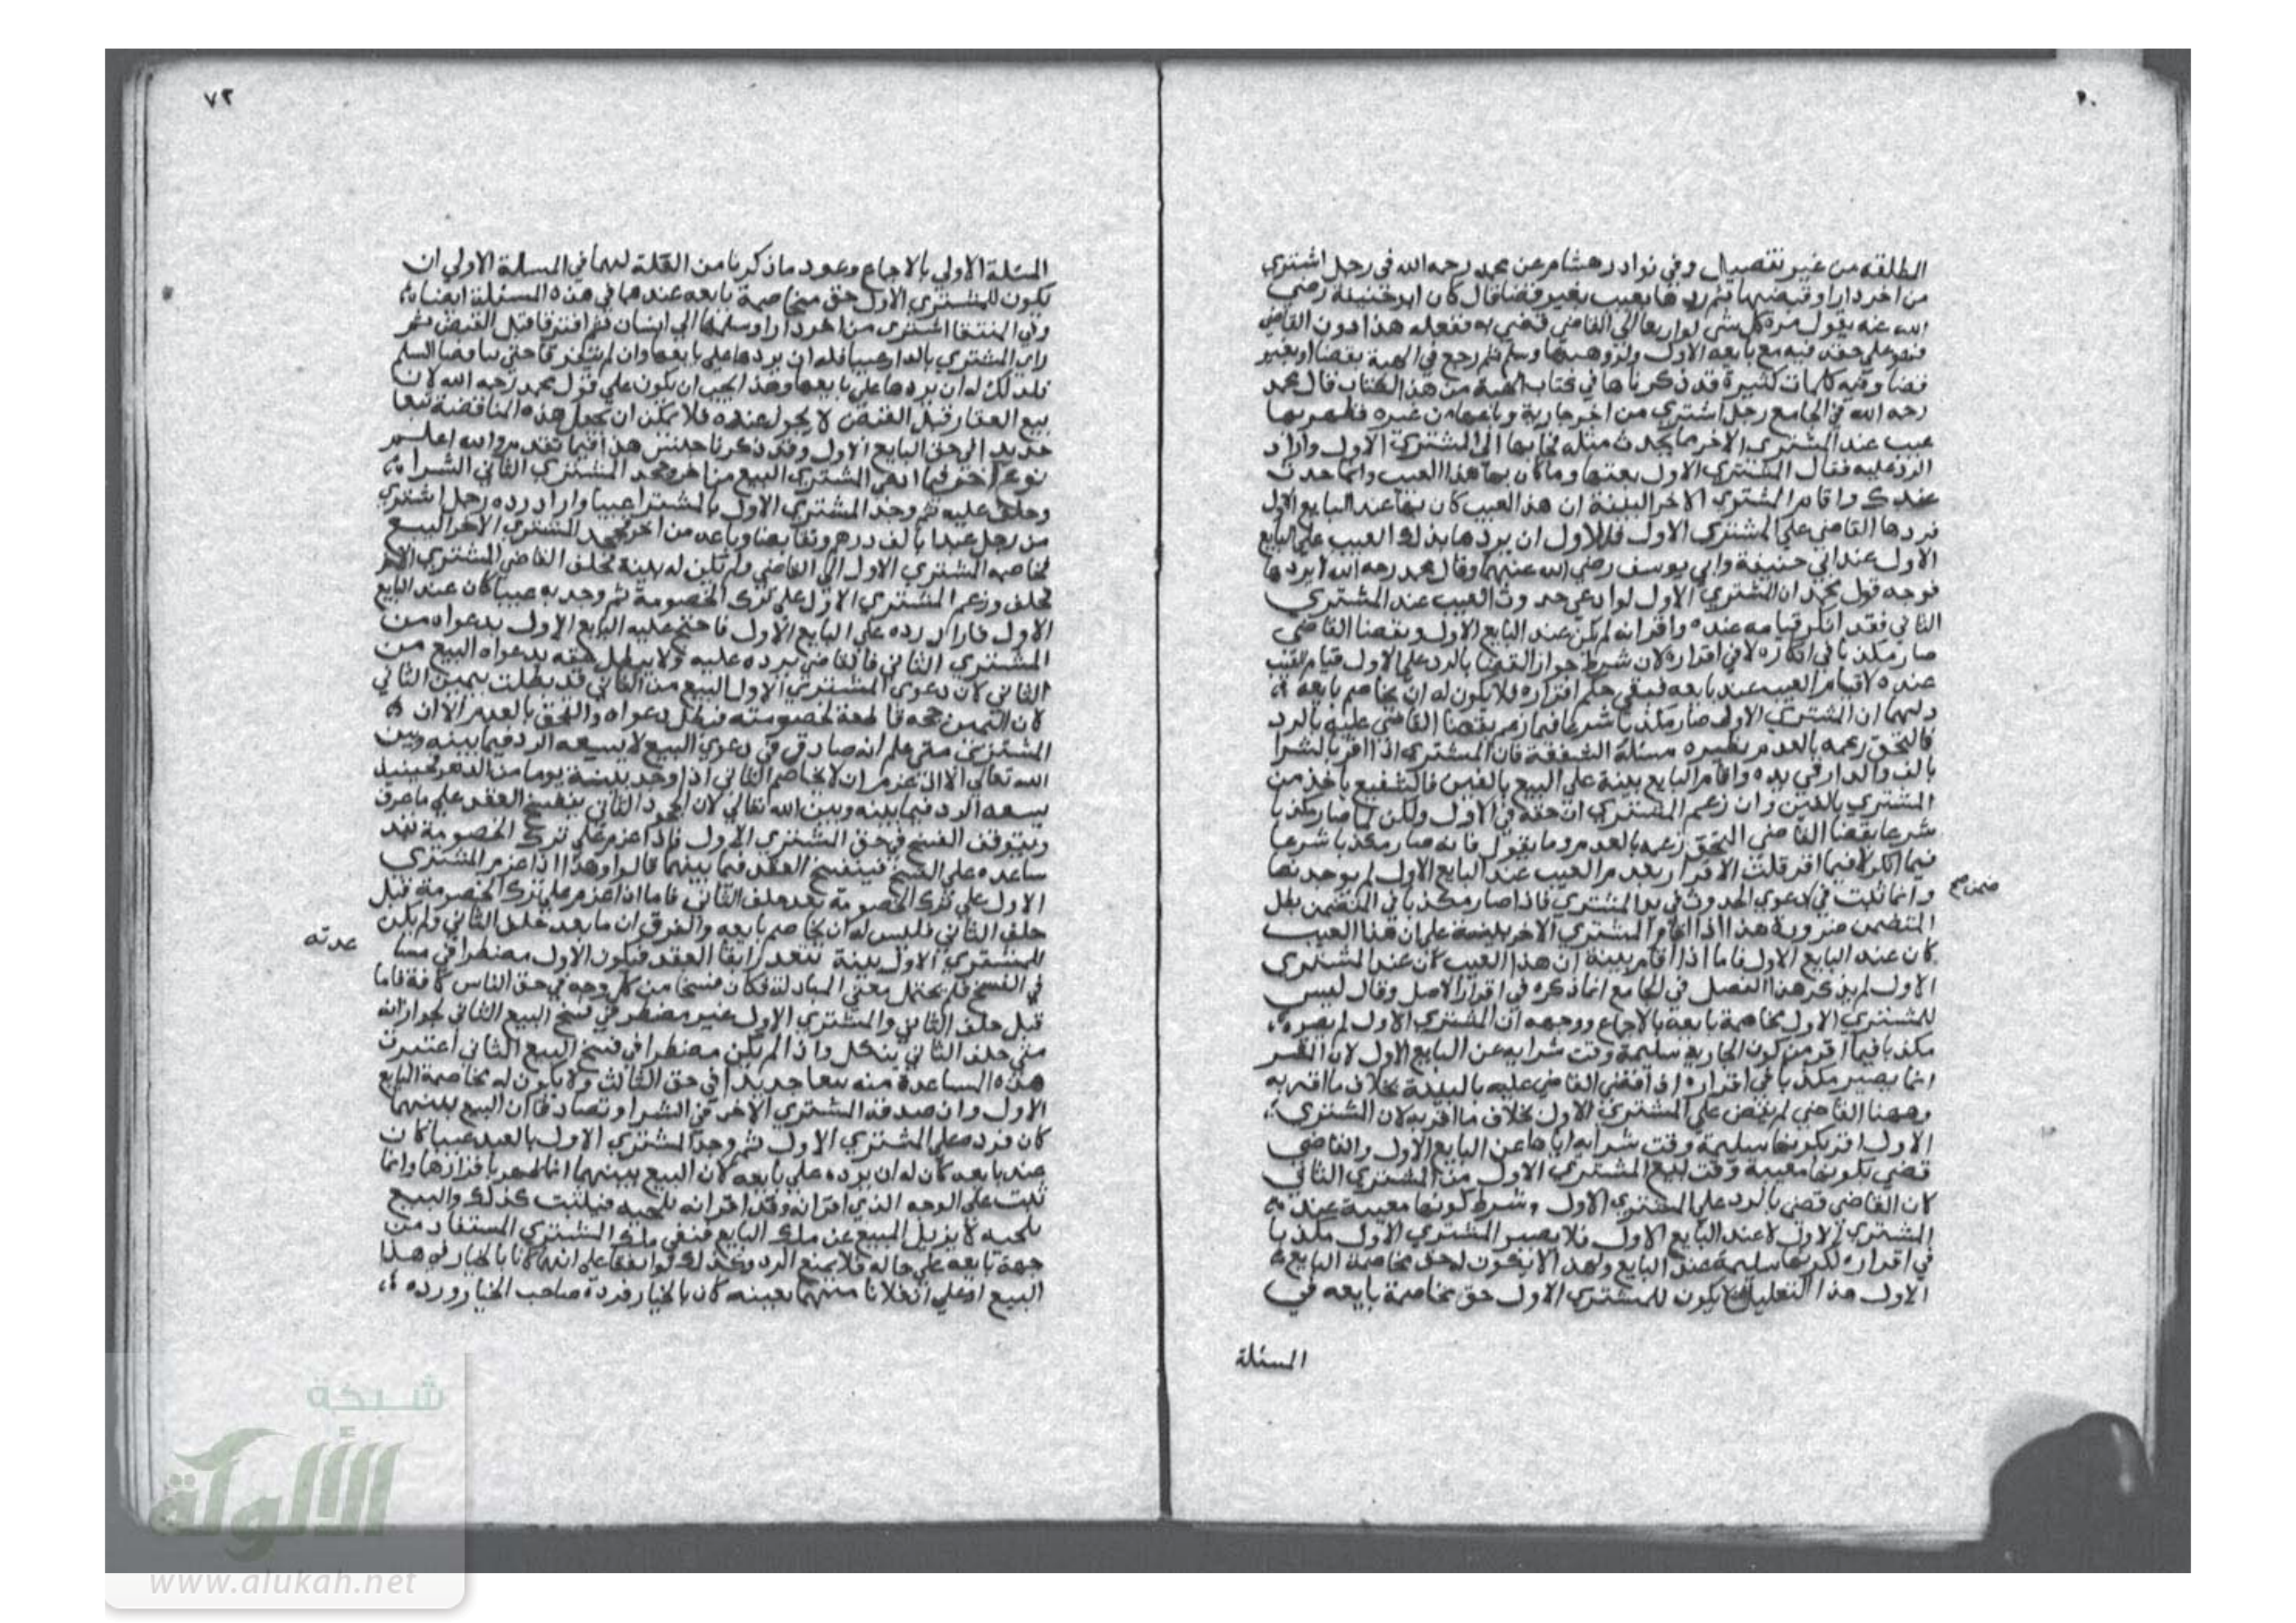 المطلقة من غير تفصيل وفي نوادر هشام عن محمد رحمه الله في رجل اشتري
من اخر دارا وقبضها ثم ردها بعيب بغير قضا قال كان ابو حنيفة رضي
الله عنه يقول مرة كل شي لو ارتفعا الي القاضي قضي به ففعله هذا دون القاضي
فهو علي حقه فيه مع بايعه الاول ولو وهبها وسلم ثم رجع في الهبة بقضا او بغير
قضا وفيه كلمات كثيرة قد ذكرناها في كتاب الهبة من هذا الكتاب قال محمد
رحه الله في الجامع رجل اشتري من اخر جارية وباعها من غيره فظهر بها
عيب عند المشتري الاخر ما يحدث مثله فجا بها الي المشتري الاول واراد
الرد عليه فقال المشتري الاول بعتها وما كان بها هذا العيب وانما حدث
عندك واقام المشتري الاخر البينة ان هذا العيب كان بها عند البايع الاول
فردها القاضي علي المشتري الاول فللاول ان يردها بذلك العيب علي البايع
الاول عند ابي حنيفة وابي يوسف رضي الله عنهما وقال محمد رحمه الله لا يردها
فوجه قول محمد ان المشتري الاول لو ادعي حدوث العيب عند المشتري
الثاني فقد انكر قيامه عنده واقر انه لم يكن عند البايع الاول وبقضا القاضي
صار مكذبا في انكاره لا في اقراره لان شرط جواز القضا بالرد علي الاول قيام العيب
عنده لا قيام العيب عند بايعه فبقي حكم اقراره فلا يكون له ان يخاصم بايعه
ولهما ان المشتري الاول صار مكذبا شرعا فيما زعم بقضا القاضي عليه بالرد
فالتحق زعمه بالعدم نظيره مسئلة الشفعة فان المشتري اذا اقر بالشرا
بالف والدار في يده واقام البايع بينة علي البيع بالفين فالشفيع ياخذ من
المشتري بالفين وان زعم المشتري ان حقه في الاول ولكن لما صار مكذبا
شرعا بقضا القاضي التحق زعمه بالعدم وما يقول فانه صار مكذبا شرعا
فيما انكر لا فيما اقر قلت الاقرار بعدم العيب عند البايع الاول لم يوجد نصا
وانما ثبت في دعوي الحدوث في يد المشتري فاذا صار مكذبا في المتضمن بطل
ضمن صح
المتضمن ضرورة هذا اذا اقام المشتري الاخر بينة علي ان هذا العيب
كان عند البايع الاول فاما اذا اقام بينة ان هذا العيب كان عند المشتري
الاول لم يذكر هذا الفصل في الجامع انما ذكره في اقرار الاصل وقال ليس
للمشتري الاول مخاصمة بايعه بالاجماع ووجهه ان المشتري الاول لم يصر
مكذبا فيما اقر من كون الجارية سليمة وقت شرايه عن البايع الاول لان المقر
انما يصير مكذبا في اقراره اذا قضي القاضي عليه بالبينة بخلاف ما اقر به
وههنا القاضي لم يقض علي المشتري الاول بخلاف ما اقر به لان المشتري
الاول اقر بكونها سليمة وقت شرايه اياها عن البايع الاول والقاضي
قضي بكونها معيبة وقت بيع المشتري الاول من المشتري الثاني
كان القاضي قضي بالرد علي المشتري الاول وشرط كونها معيبة عند
المشتري الاول لا عند البايع الاول فلا يصير المشتري الاول مكذبا
في اقراره لكونها سليمة عند البايع ولهذا لا يكون له حق مخاصمة البايع
الاول هذا التعليل يكون للمشتري الاول حق مخاصمة بايعه في
المسئلة
٧٢
المسئلة الاولي بالاجماع وعود ما ذكرنا من العلة لهما في المسلة الاولي ان
يكون للمشتري الاول حق مخاصمة بايعه عندهما في هذه المسئلة ايضا
وفي المنتقا اشتري من اخر دارا وسلمها الي انسان ثم افترقا قبل القبض ثم
راي المشتري بالدار عيبا فله ان يردها علي بايعها وان لم يفترقا حتي تناقضا السلم
فلذلك له ان يردها علي بايعها وهذا يجب ان يكون علي قول محمد رحمه الله لان
بيع العقار قبل القبض لا يجوز عنده فلا يمكن ان يجعل هذه المناقضة بيعا
جديدا في حق البايع الاول وقد ذكرنا جنس هذا فيما تقدم والله اعلم
نوع اخر فيما ادعي المشتري البيع من اخر وجحد المشتري الثاني الشرا
وحلف عليه ثم وجد المشتري الاول بالمشترا عيبا واراد رده رجل اشتري
من رجل عبدا بالف درهم وتقابضا وباعه من اخر فجحد المشتري الاخر البيع
فخاصمه المشتري الاول الي القاضي ولم يكن له بينة فحلف القاضي المشتري الاخر
فحلف وزعم المشتري الاول علي ترك الخصومة ثم وجد به عيبا كان عند البايع
الاول فاراد رده علي البايع الاول فاحتج عليه البايع الاول بدعواه من
المشتري الثاني فالقاضي يرده عليه ولا يبطل حقه بدعواه البيع من
الثاني لان دعوي المشتري الاول البيع من الثاني قد بطلت بيمين الثاني
لان اليمين حجة قاطعة لخصومته فبطل دعواه والتحق بالعدم الا ان
المشتري متي علم انه صادق في دعوي البيع لا يسعه الرد فيما بينه وبين
الله تعالي الا اذا عزم ان لا يخاصم الثاني اذا وجد بينة يوما من الدهر فحينئذ
يسعه الرد فيما بينه وبين الله تعالي لان الجحود الثاني يفسخ العقد علي ما عرف
ويتوقف الفسخ في حق المشتري الاول فاذا عزم علي ترك الخصومة فقد
ساعده علي الفسخ فينفسخ العقد فيما بينهما قالوا وهذا اذا عزم المشتري
الاول علي ترك الخصومة بعد حلف الثاني فاما اذا عزم علي ترك الخصومة قبل
حلف الثاني فليس له ان يخاصم بايعه والفرق ان ما بعد حلف الثاني ولم يكن
للمشتري الاول بينة تعذر ايفا العقد فيكون الاول مضطرا في
في الفسخ فلم يحتمل معني المبادلة فكان فسخا من كل وجه في حق الناس كافة فاما
قبل حلف الثاني والمشتري الاول غير مضطر في فسخ البيع الثاني لجواز انه
متي حلف الثاني ينكل واذا لم يكن مضطرا في فسخ البيع الثاني اعتبرت
هذه المساعدة منه بيعا جديدا في حق الثالث ولا يكون له مخاصمة البايع
الاول وان صدقه المشتري الاخر في الشرا وتصادقا ان البيع بينهما
كان فرده علي المشتري الاول ثم وجد المشتري الاول بالعبد عيبا كان
عند بايعه كان له ان يرده علي بايعه لان البيع بينهما انما ظهر باقرارهما وانما
ثبت علي الوجه الذي اقرا به وقد اقرا انه تلجية فيثبت كذلك والبيع
تلجية لا يزيل المبيع عن ملك البايع فبقي ملك المشتري المستفاد من
جهة بايعه علي حاله فلا يمنع الرد وكذلك لو اتفقا علي انهما كانا بالخيار في هذا
البيع او علي ان فلانا منهما بعينه كان بالخيار فرده صاحب الخيار ورده
شبكة
الألوكة
www.alukah.net